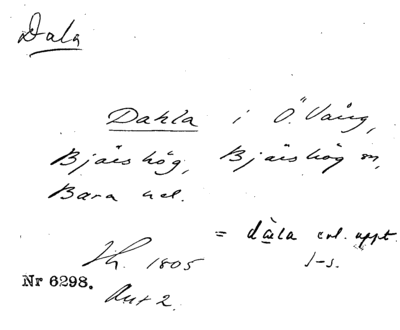 Dala
Dahla i Ö. Vång,
Bjärshög, Bjärshög sn,
Bara hd.
= dàla enl. uppt.
J-s.
Lh. 1805
Nr 6298.
Akt 2.